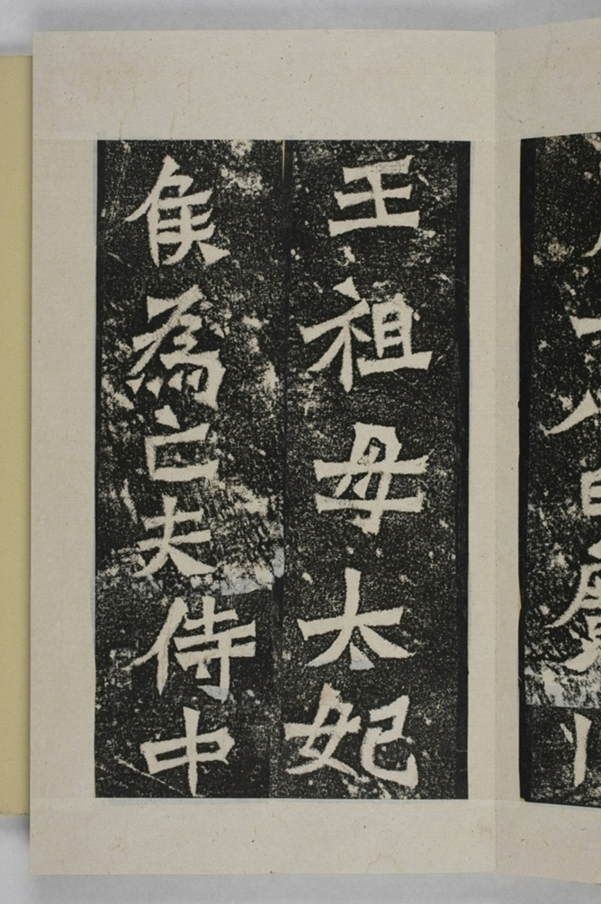 王祖母太妃
侯為亡夫侍中